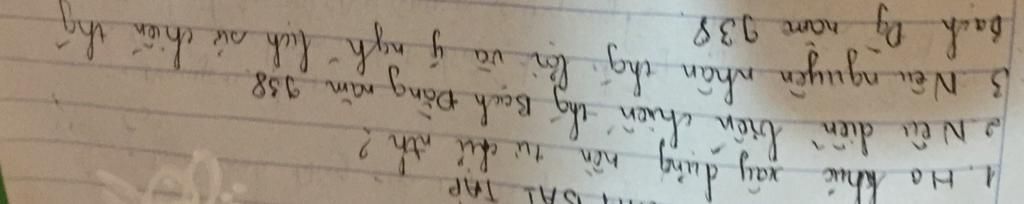 BÀI TẬP
1. Họ khúc xây dựng nền tự chủ nth?
2. Nêu diễn biến chiến thg Bạch Đằng năm 938
3. Nêu nguyên nhân thg lợi và ý ngh lịch sử chiến thg
Bạch Dg năm 938